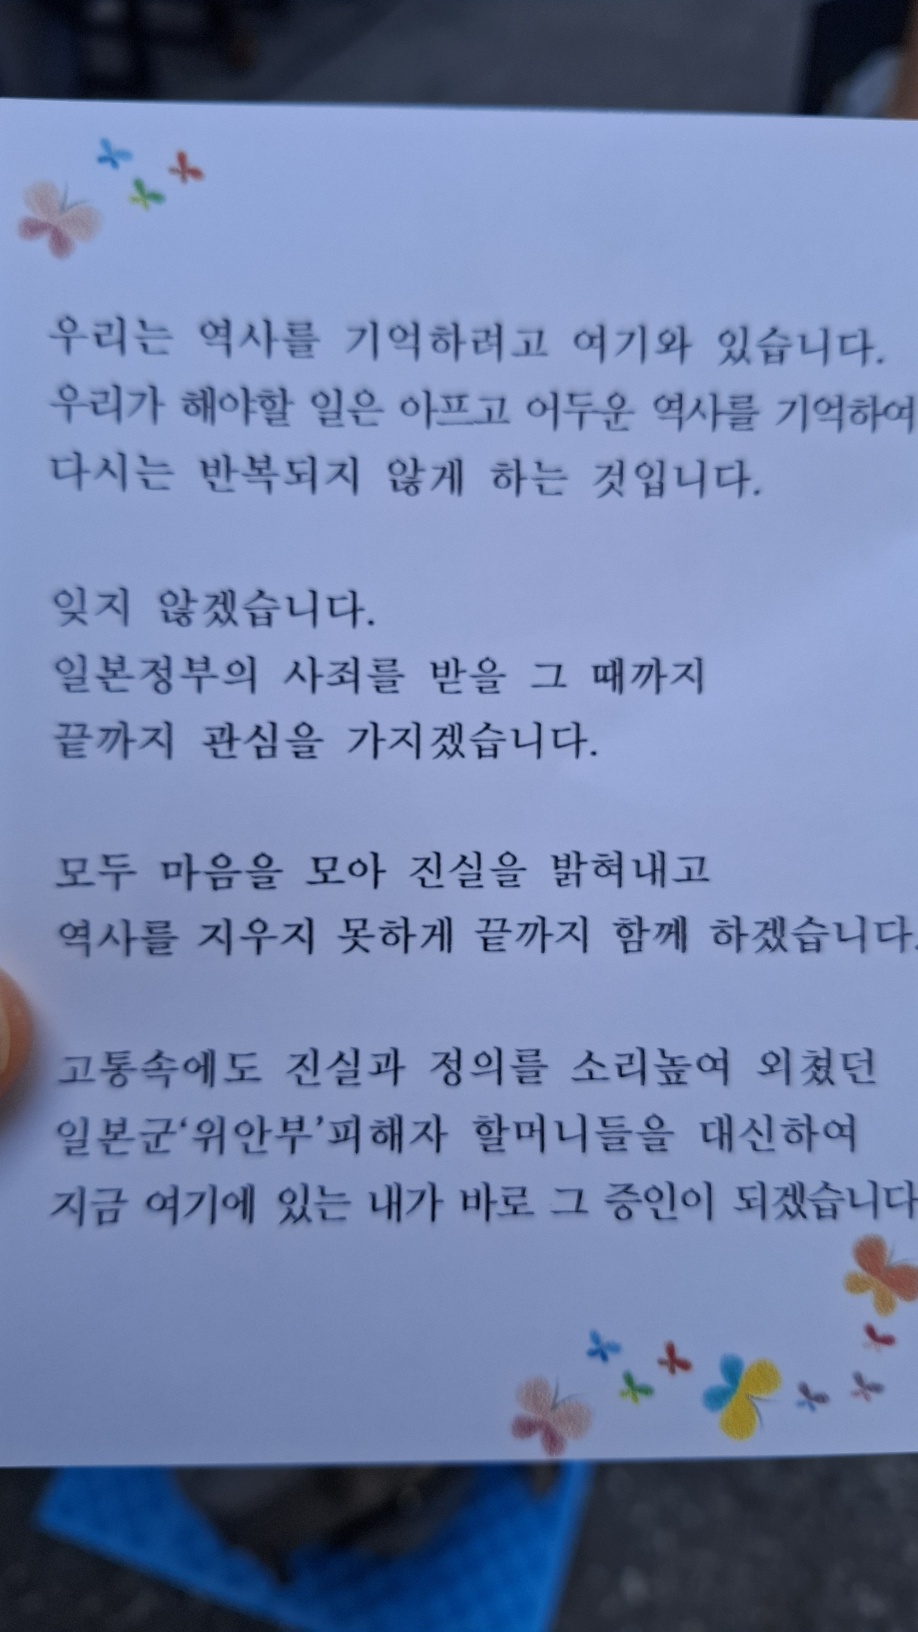 우리는 역사를 기억하려고 여기와 있습니다.
우리가 해야할 일은 아프고 어두운 역사를 기억하여
다시는 반복되지 않게 하는 것입니다.
잊지 않겠습니다.
일본정부의 사죄를 받을 그 때까지
끝까지 관심을 가지겠습니다.
모두 마음을 모아 진실을 밝혀내고
역사를 지우지 못하게 끝까지 함께 하겠습니다.
고통속에도 진실과 정의를 소리높여 외쳤던
일본군‘위안부’피해자 할머니들을 대신하여
지금 여기에 있는 내가 바로 그 증인이 되겠습니다